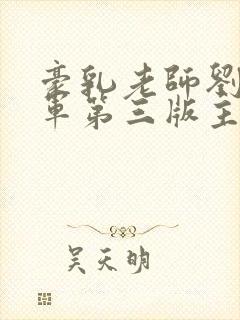 豪乳老師劉
軍第三版主
吴天明